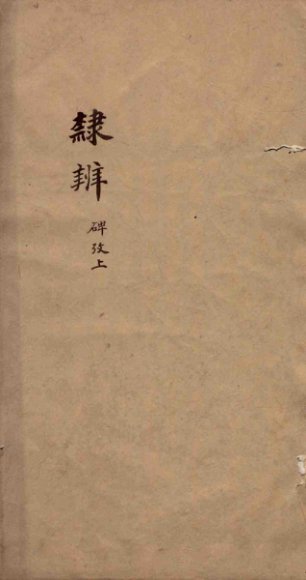 隸辨
碑攷上